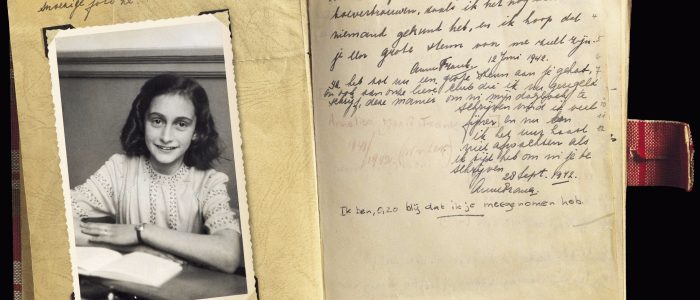 toevertrouwen, zoals ik het nog aan
niemand gekund heb, en ik hoop dat
je een grote steun voor me zult zijn.
Anne Frank. 12 Juni 1942.
Ik heb tot nu een grote steun aan je gehad,
en ook aan onze lieve club die ik nu geregeld
schrijf, deze manier om in mijn dagboek te
schrijven vind ik veel
fijner en nu kan
ik het uur haast
niet afwachten als
ik tijd heb om in je te
schrijven.
28 Sept. 1942.
Anne Frank.
Ik ben, O, zo blij dat ik je meegenomen heb.